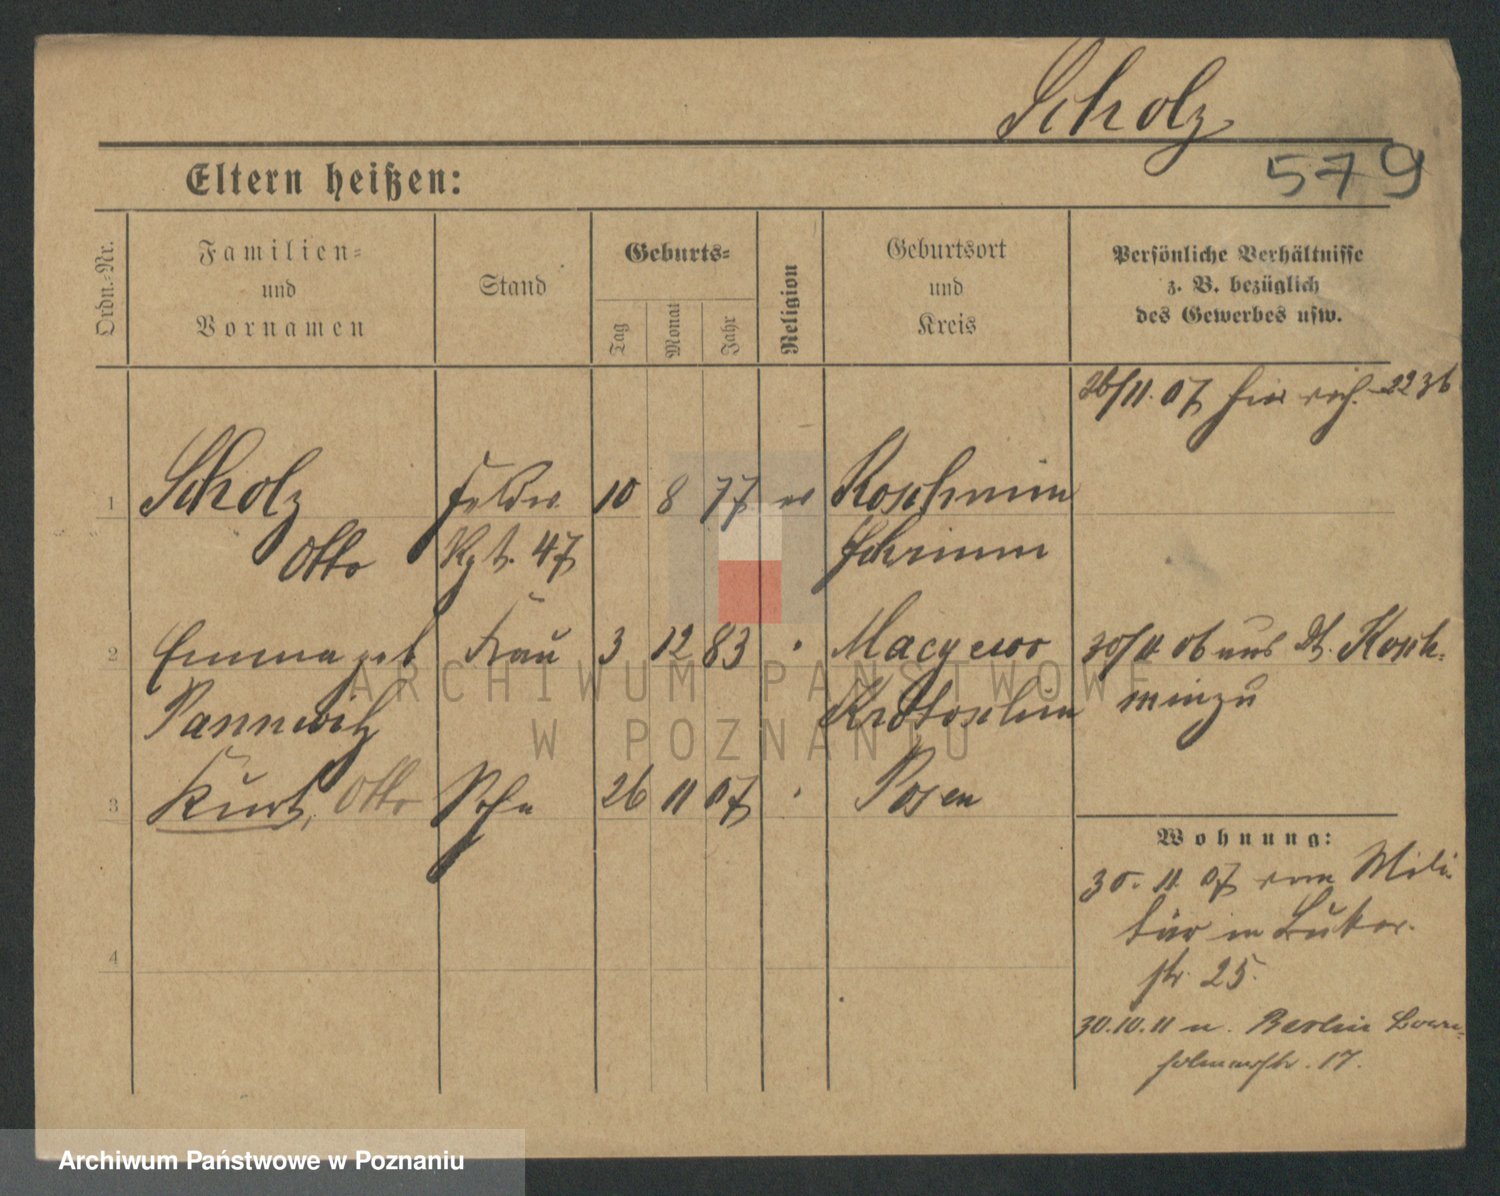 Scholz
579
Eltern heißen:
Ordn.-Nr.
Familien-
und
Vornamen
Stand
Geburts-
Tag
Monat
Jahr
Religion
Geburtsort
und
Kreis
Persönliche Verhältnisse
z. B. bezüglich
des Gewerbes usw.
26/11. 07 hier
1 Scholz Feldw. 10 8 77 ev Koschmin
Otto Rgt. 47 Schrimm
2 Emma geb Frau 3 12 83 " 30/11 06 aus Kosch-
Pannwitz Krotoschin min zu
3 Kurt, Otto Sohn 26 11 07 " Posen
Wohnung:
30. 11. 07 vom Mili-
tär in
str 25.
4
30.10.11 n. Berlin
str. 17.
ARCHIWUM PAŃSTWOWE
W POZNANIU
Archiwum Państwowe w Poznaniu